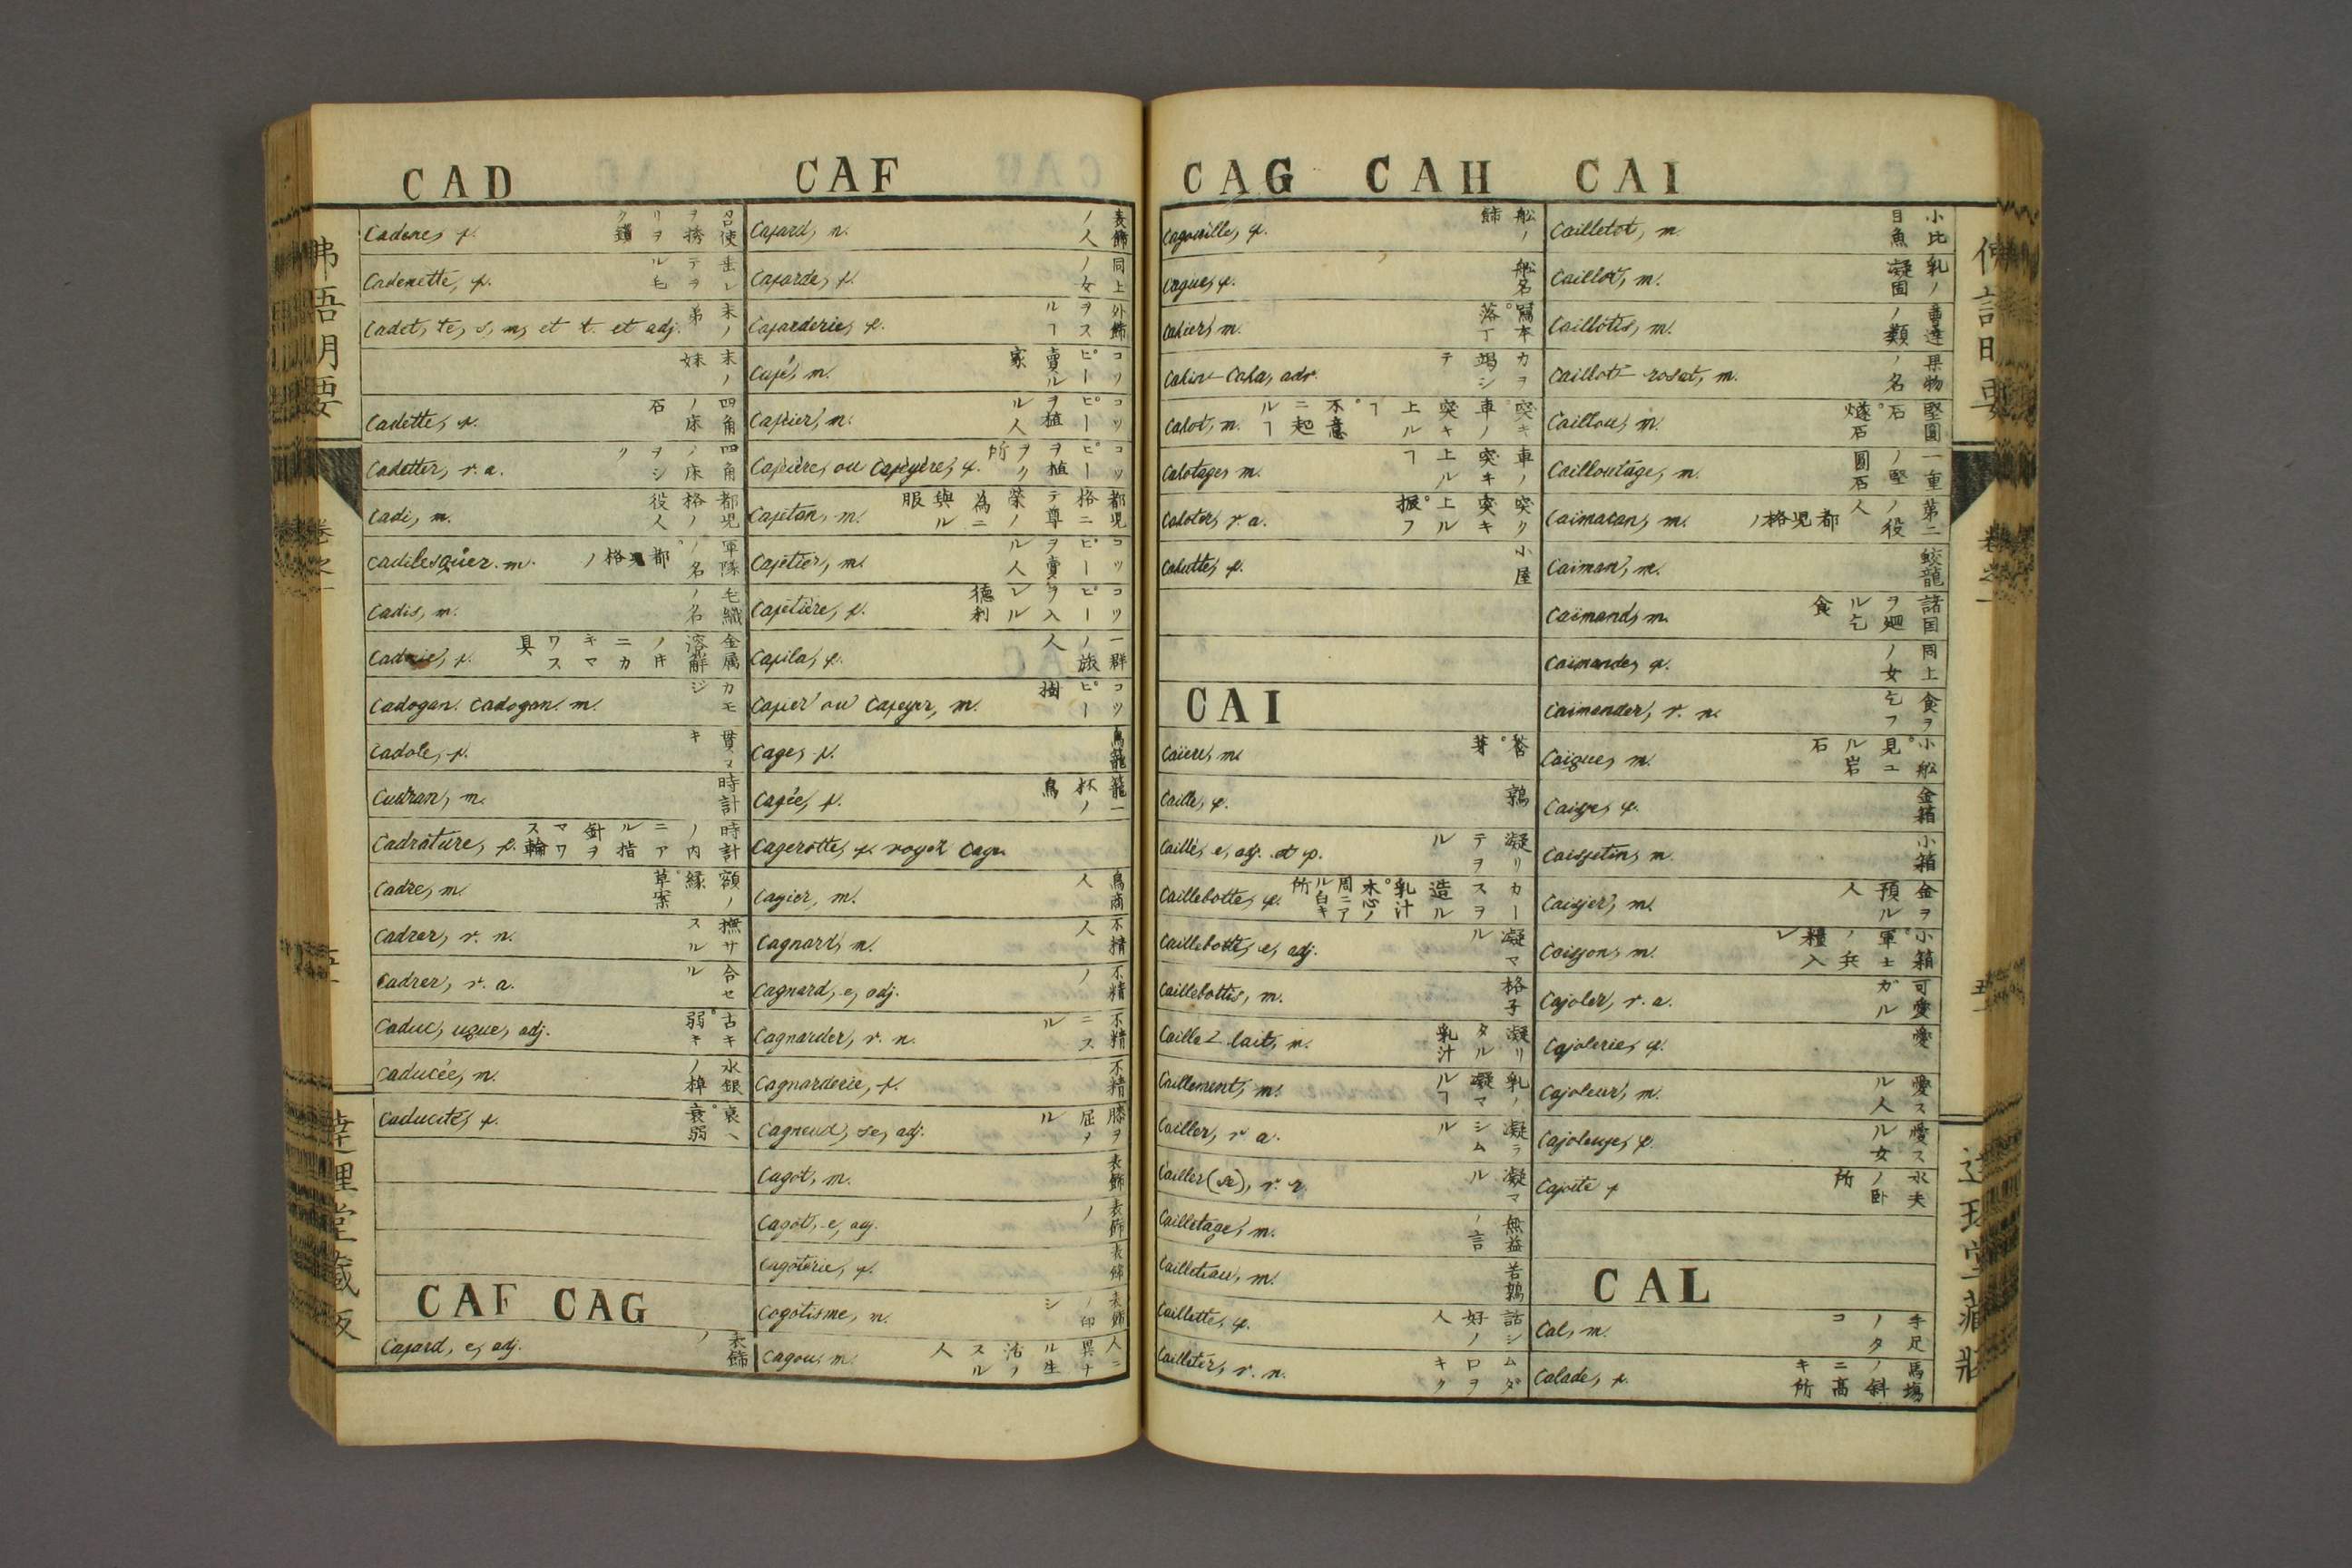 CAD
CAF
佛語明要
卷之一
達理堂藏版
Cadene, f. 召使ヲ携リヲク鎖
Cadenette, f. 垂レテヲル毛
Cadet, te, s, m, et f. et adj. 末ノ弟
末ノ妹
Cadette, f. 四角ノ床石
Cadetter, v. a. 四角ノ床ヲシク
Cadi, m. 都児格ノ役人
Cadilesquier. m. 軍隊ノ名。都児格ノ
Cadis, m. 毛織ノ名
金属溶解ノ片ニカキマワス具
Cadogan. Cadogan. m. カモジ
Cadole, f. 貫ヌキ
Cadran, m. 時計
Cadrature, f. 時計ノ内ニアル指針ヲマワス輪
Cadre, m. 額ノ縁。草案
Cadrer, v. n. 撫サスル
Cadrer, v. a. 合セル
Caduc, uque, adj. 古キ。弱キ
Caducée, m. 水銀ノ棒
Caducité, f. 衰ヘ。衰弱
CAF CAG
Cafard, e, adj. 表飾ノ
Cafard, m. 表飾ノ人
Cafarde, f. 同上ノ女
Cafarderie, f. 外飾ヲスルヿ
Café, m. コッピー賣ル家
Caféier, m. コッピーヲ植ル人
Caféière, ou Cafeyère, f. コッピーヲ植ヲク所
Cafetan, m. 都児格ニテ尊榮ノ為ニ與ル服
Cafetier, m. コッピーヲ賣ル人
Cafetière, f. コッピーヲ入レル徳利
Cafila, f. 一群ノ旅人
Cafier ou Cafeyer, m. コッピー樹
Cage, f. 鳥籠
Cagée, f. 籠一杯ノ鳥
Cagerotte, f. voyez Cage
Cagier, m. 鳥商人
Cagnard, m. 不精人
Cagnard, e, adj. 不精ノ
Cagnarder, v. n. 不精ニスル
Cagnarderie, f. 不精
Cagneux, se, adj. 膝ヲ屈タル
Cagot, m. 表飾
Cagot, e, adj. 表飾ノ
Cagoterie, f. 表飾
Cagotisme, m. 表飾ノ印シ
Cagou, m. 人ニ異ナル生活ノスル人
CAG CAH CAI
Cagouille, f. 舩ノ飾
Cague, f. 舩名
Cahier, m. 寫本。落丁
Cahin-Caha, adv. カヲ竭シテ
Cahot, m. 突キ。車ノ突キ上ルヿ。不意ニ起ルヿ
Cahotage, m. 車ノ突キ上ルヿ
Cahoter, v. a. 突ク突キ上ル。振フ
Cahutte, f. 小屋
CAI
Caieu, m. 苔。芽
Caille, f. 鶉
Caillé, e, adj. et p. 凝リテヲル
Caillebotte, f. カースヲ造ル乳汁。木心ノ周ニアル白キ所
Caillebotté, e, adj. 凝マル
Caillebottis, m. 格子
Caille-lait, m. 凝リタル乳汁
Caillement, m. 乳ノ凝マルヿ
Cailler, v. a. 凝ラシムル
Cailler (se), v. r. 凝マル
Cailletage, m. 無益ノ言
Cailleteau, m. 若鶉
Caillette, f. 話シ好ノ人
Cailleter, v. n. ムダ口ヲキク
Cailletot, m. 小比目魚
Caillot, m. 乳ノ凝固
Caillotis, m. 曹達ノ類
Caillot-rosat, m. 果物ノ名
Caillou, m. 堅圓石。燧石
Cailloutage, m. 一重ノ堅圓石
Caimacan, m. 第二ノ役人 都児格ノ
Caïman, m. 鮫龍
Caïmand, m. 諸国ヲ廻ル乞食
Caïmande, f. 同上ノ女
Caïmander, v. n. 食ヲ乞フ
Caïque, m. 小舩。見ユル岩石
Caisse, f. 金箱
Caissetin, m. 小箱
Caissier, m. 金ヲ預ル人
Caisson, m. 小箱。軍士ノ兵糧入レ
Cajoler, v. a. 可愛ガル
Cajolerie, f. 愛
Cajoleur, m. 愛スル人
Cajoleuse, f. 愛スル女
Cajute f 水夫ノ臥所
CAL
Cal, m. 手足ノタコ
Calade, f. 馬場ノ斜ニ高キ所
佛語明要
卷之一
達理堂藏版